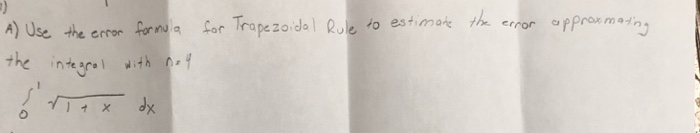 A) Use the error formula for Trapezoidal Rule to estimate the error approximating
the integral with n=4
∫₀¹ √1 + x dx